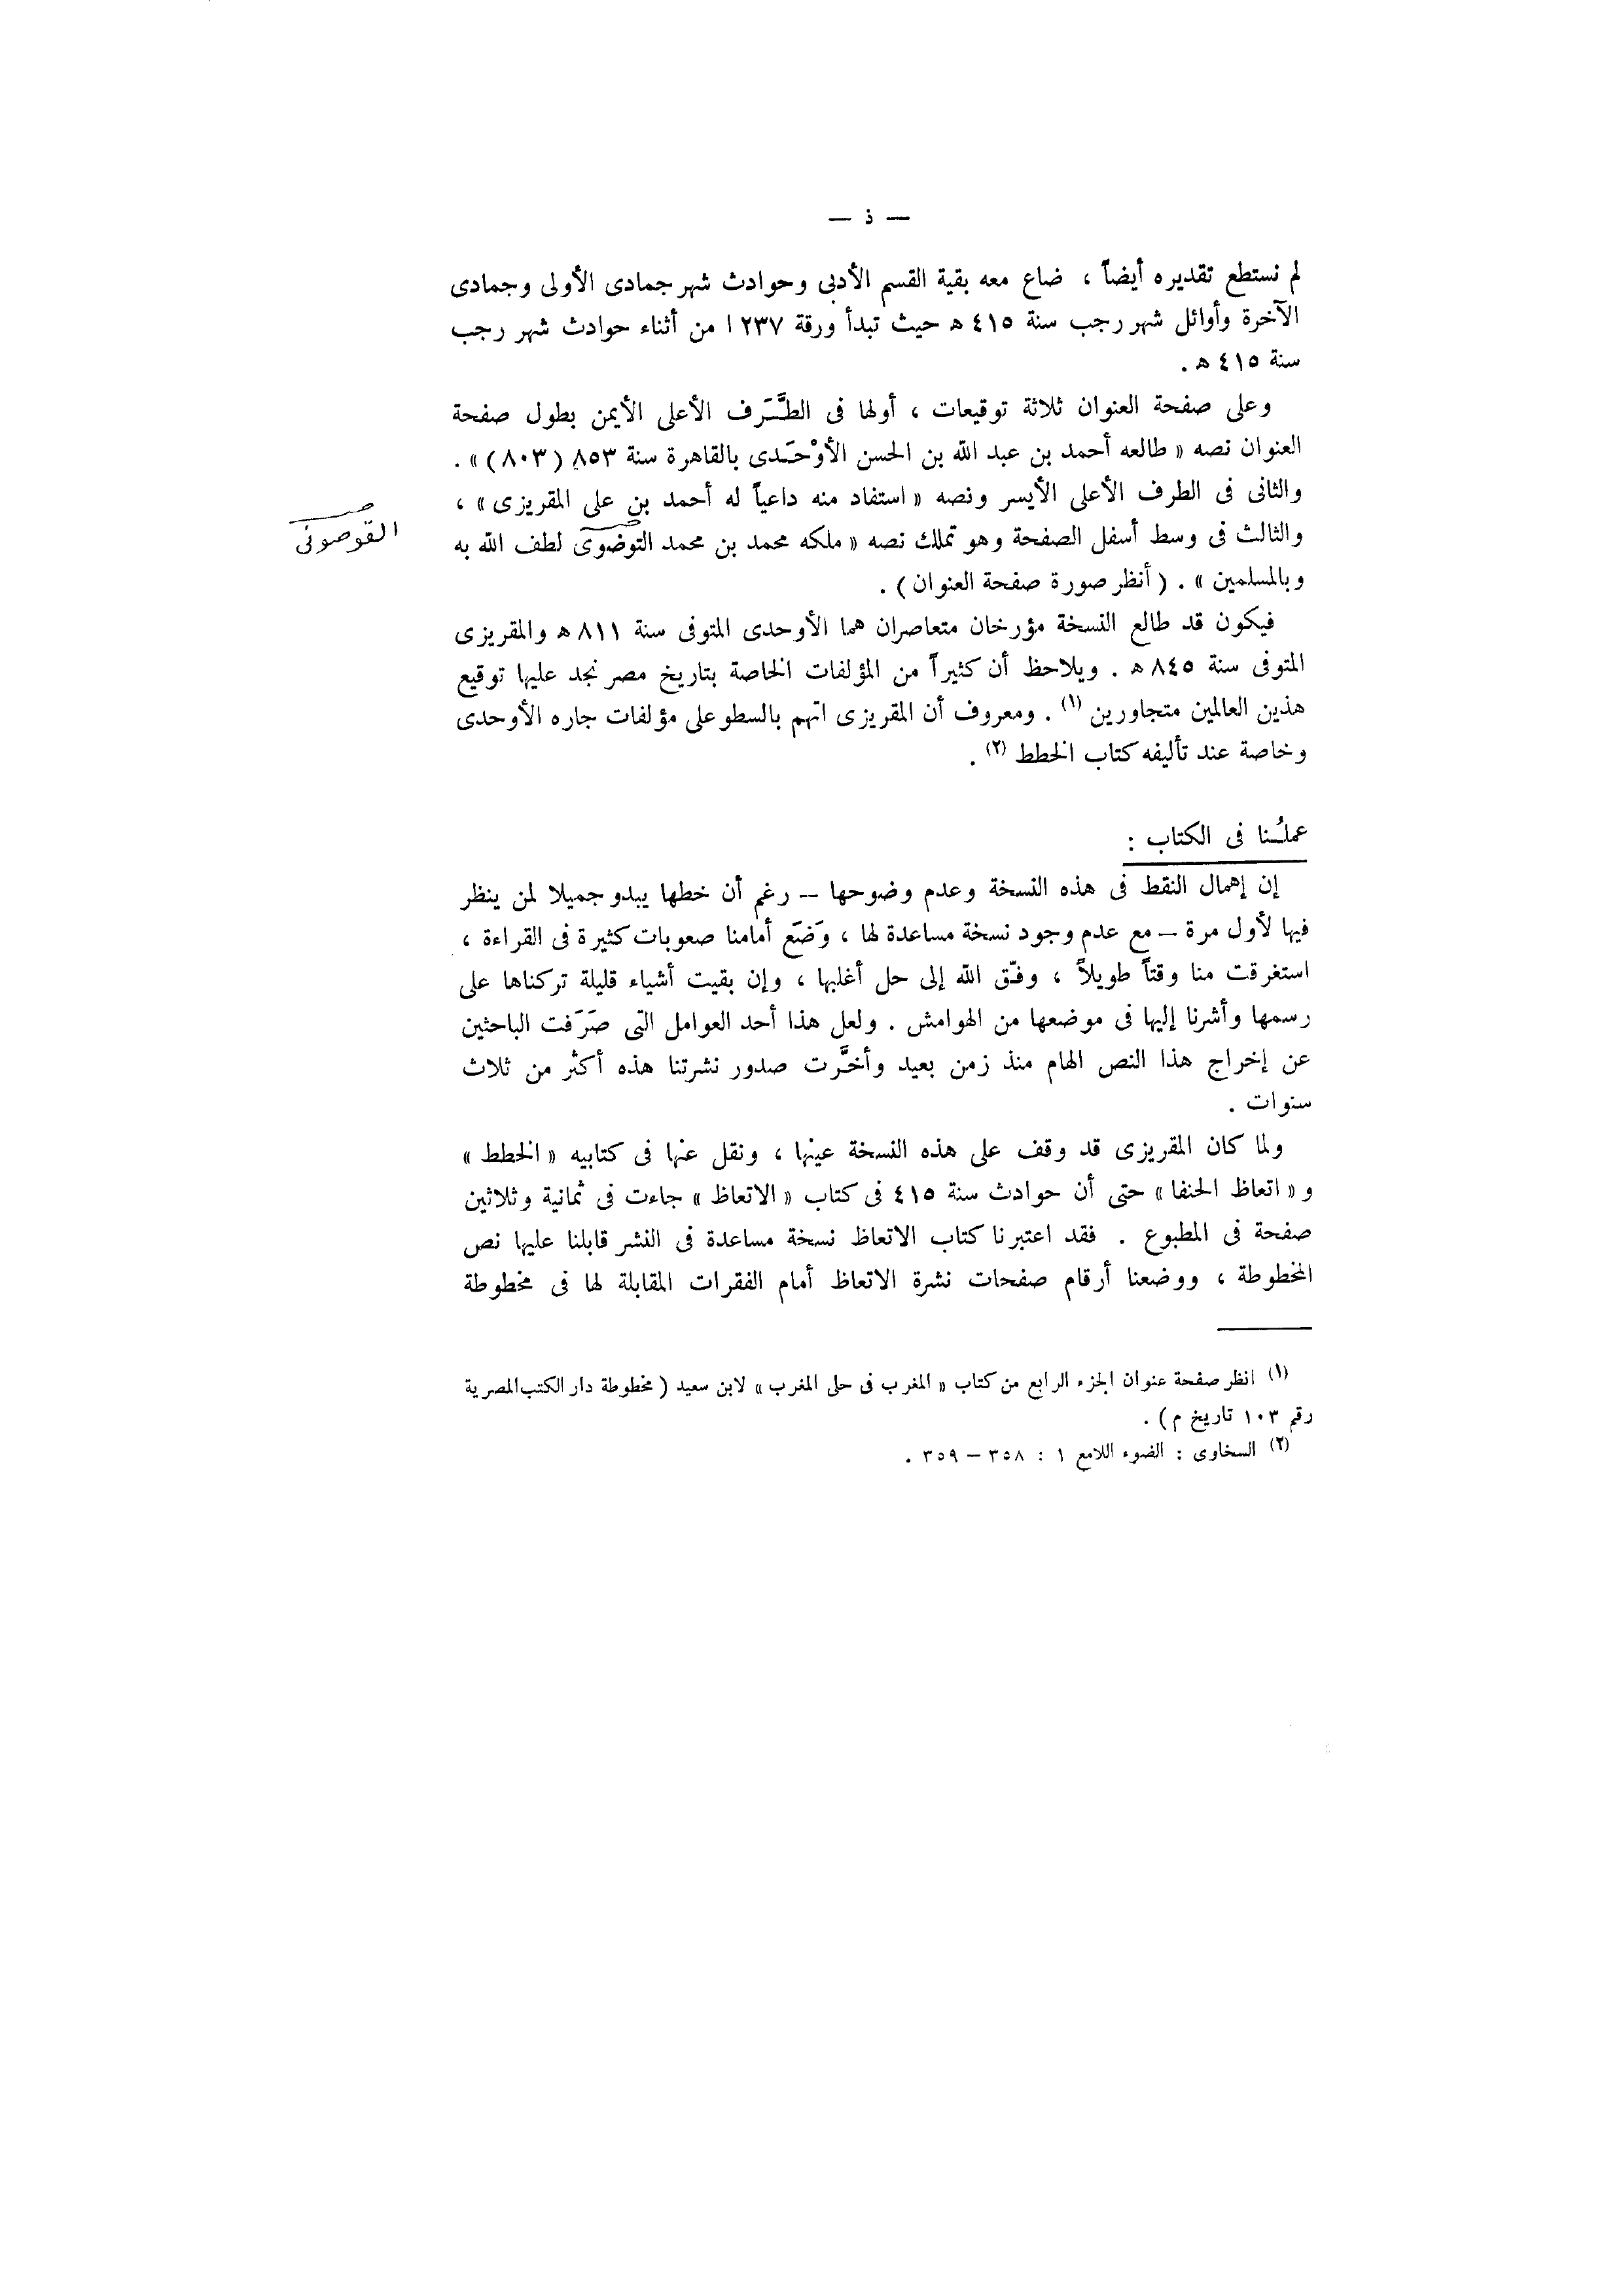 — ذ —
لم نستطع تقديره أيضاً ، ضاع معه بقية القسم الأدبى وحوادث شهر جمادى الأولى وجمادى
الآخرة وأوائل شهر رجب سنة ٤١٥ ه حيث تبدأ ورقة ٢٣٧ ا من أثناء حوادث شهر رجب
سنة ٤١٥ ه .
وعلى صفحة العنوان ثلاثة توقيعات ، أولها فى الطَّرَف الأعلى الأيمن بطول صفحة
العنوان نصه « طالعه أحمد بن عبد الله بن الحسن الأوْحَدى بالقاهرة سنة ٨٥٣ (٨٠٣) » .
والثانى فى الطرف الأعلى الأيسر ونصه « استفاد منه داعياً له أحمد بن على المقريزى » ،
والثالث فى وسط أسفل الصفحة وهو تملك نصه « ملكه محمد بن محمد التوضوى لطف الله به
القوصونى صـ
وبالمسلمين » . (أنظر صورة صفحة العنوان) .
فيكون قد طالع النسخة مؤرخان متعاصران هما الأوحدى المتوفى سنة ٨١١ ه والمقريزى
المتوفى سنة ٨٤٥ ه . ويلاحظ أن كثيراً من المؤلفات الخاصة بتاريخ مصر نجد عليها توقيع
هذين العالمين متجاورين (١) . ومعروف أن المقريزى اتهم بالسطو على مؤلفات جاره الأوحدى
وخاصة عند تأليفه كتاب الخطط (٢) .
عملُنا فى الكتاب :
إن إهمال النقط فى هذه النسخة وعدم وضوحها — رغم أن خطها يبدو جميلا لمن ينظر
فيها لأول مرة — مع عدم وجود نسخة مساعدة لها ، وَضَع أمامنا صعوبات كثيرة فى القراءة ،
استغرقت منا وقتاً طويلاً ، وفّق الله إلى حل أغلبها ، وإن بقيت أشياء قليلة تركناها على
رسمها وأشرنا إليها فى موضعها من الهوامش . ولعل هذا أحد العوامل التى صَرَفت الباحثين
عن إخراج هذا النص الهام منذ زمن بعيد وأخَّرت صدور نشرتنا هذه أكثر من ثلاث
سنوات .
ولما كان المقريزى قد وقف على هذه النسخة عينها ، ونقل عنها فى كتابيه « الخطط »
و « اتعاظ الحنفا » حتى أن حوادث سنة ٤١٥ فى كتاب « الاتعاظ » جاءت فى ثمانية وثلاثين
صفحة فى المطبوع . فقد اعتبرنا كتاب الاتعاظ نسخة مساعدة فى النشر قابلنا عليها نص
المخطوطة ، ووضعنا أرقام صفحات نشرة الاتعاظ أمام الفقرات المقابلة لها فى مخطوطة
(١) انظر صفحة عنوان الجزء الرابع من كتاب « المغرب فى حلى المغرب » لابن سعيد (مخطوطة دار الكتب المصرية
رقم ١٠٣ تاريخ م) .
(٢) السخاوى : الضوء اللامع ١ : ٣٥٨ — ٣٥٩ .